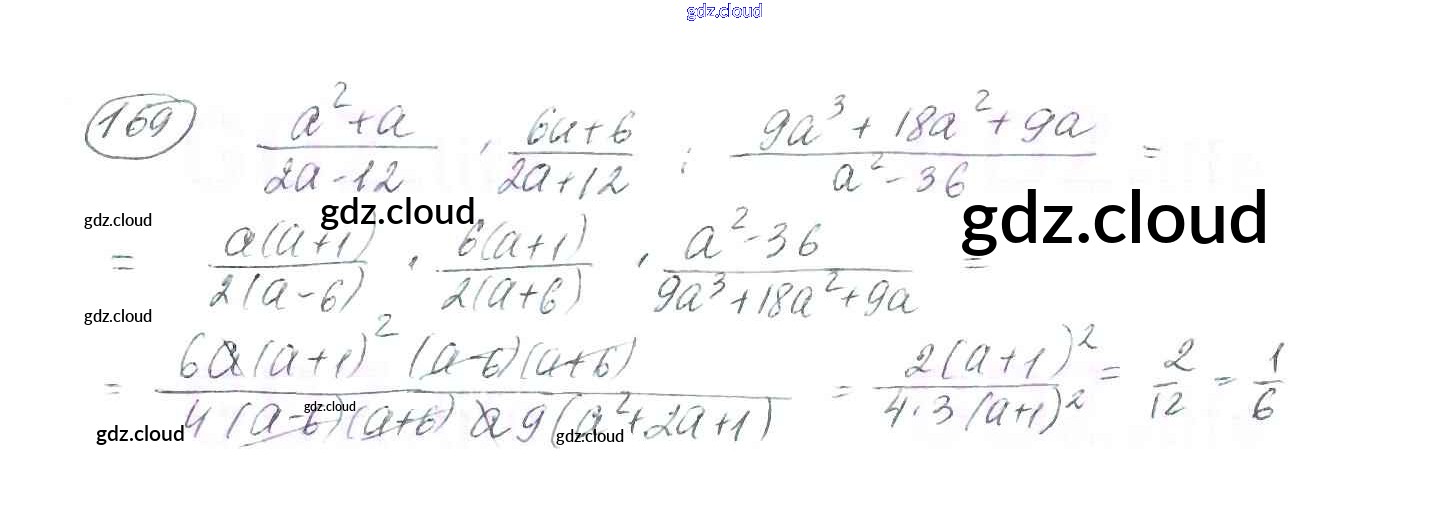 gdz.cloud
169 (a²+a)/(2a-12) · (6a+6)/(2a+12) : (9a³+18a²+9a)/(a²-36) =
gdz.cloud gdz.cloud gdz.cloud
= a(a+1)/2(a-6) · 6(a+1)/2(a+6) · (a²-36)/(9a³+18a²+9a) =
gdz.cloud
= 6a(a+1)²(a-6)(a+6)/4(a-6)(a+6)a9(a²+2a+1) = 2(a+1)²/4·3(a+1)² = 2/12 = 1/6
gdz.cloud
gdz.cloud gdz.cloud